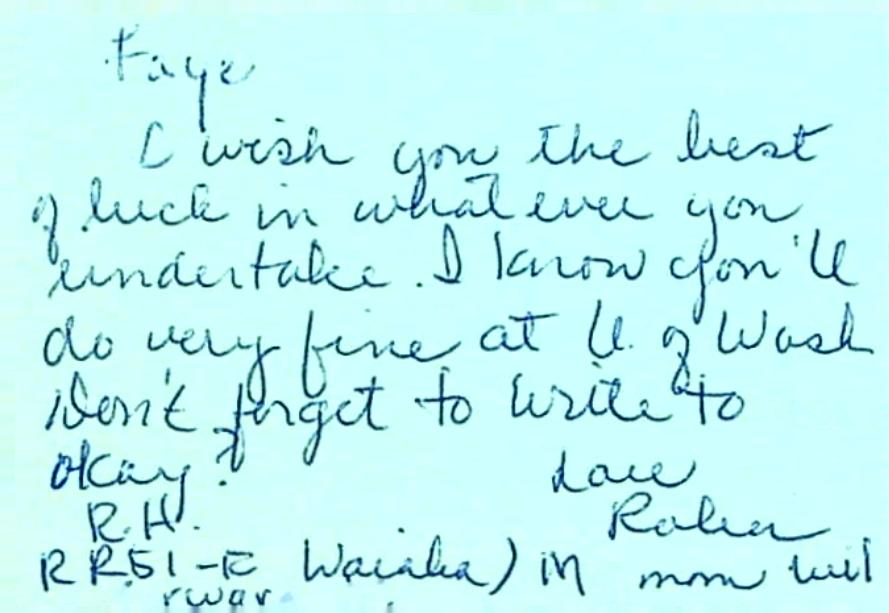 Faye
I wish you the best
of luck in what ever you
undertake. I know you'll
do very fine at U. of Wash
Don't forget to write to
okay?
Love
R.H.
mom will